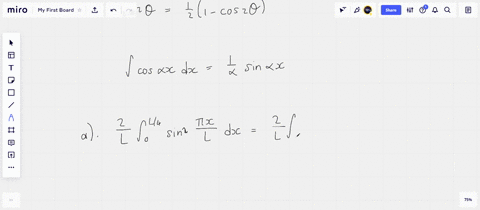 miro My First Board Share
2θ = 1/2 (1 - cos2θ)
∫ cos αx dx = 1/α sin αx
a). 2/L ∫₀^{L/4} sin² πx/L dx = 2/L ∫
75%